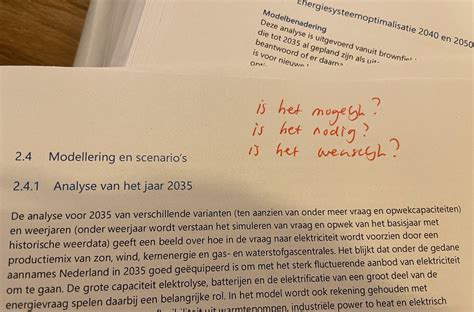 Energiesysteemoptimalisatie 2040 en 2050
Modelbenadering
Deze analyse is uitgevoerd vanuit brownfiel
die tot 2035 al gepland zijn als uit
beantwoord of er daarna
is voor nieuwe
is het mogelijk?
is het nodig?
is het wenselijk?
2.4 Modellering en scenario's
2.4.1 Analyse van het jaar 2035
De analyse voor 2035 van verschillende varianten (ten aanzien van onder meer vraag en opwekcapaciteiten)
en weerjaren (onder weerjaar wordt verstaan het simuleren van vraag en opwek van het basisjaar met
historische weerdata) geeft een beeld over hoe in de vraag naar elektriciteit wordt voorzien door een
productiemix van zon, wind, kernenergie en gas- en waterstofgascentrales. Het blijkt dat onder de gedane
aannames Nederland in 2035 goed geëquipeerd is om met het sterk fluctuerende aanbod van elektriciteit
om te gaan. De grote capaciteit elektrolyse, batterijen en de elektrificatie van een groot deel van de
energievraag spelen daarbij een belangrijke rol. In het model wordt ook rekening gehouden met
uit warmtepompen, industriële power to heat en elektrisch